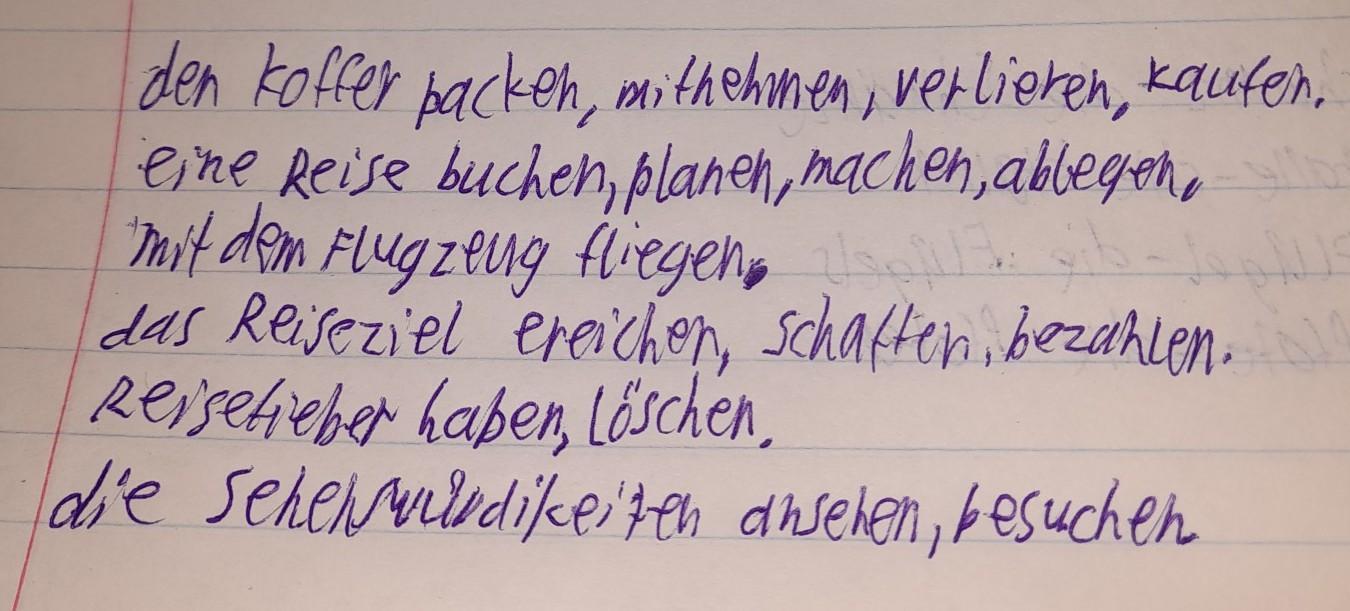 den Koffer packen, mitnehmen, verlieren, kaufen.
eine Reise buchen, planen, machen, ablegen,
mit dem Flugzeug fliegen.
das Reiseziel ereichen, schaffen, bezahlen.
Reisefieber haben, löschen.
die ansehen, besuchen.